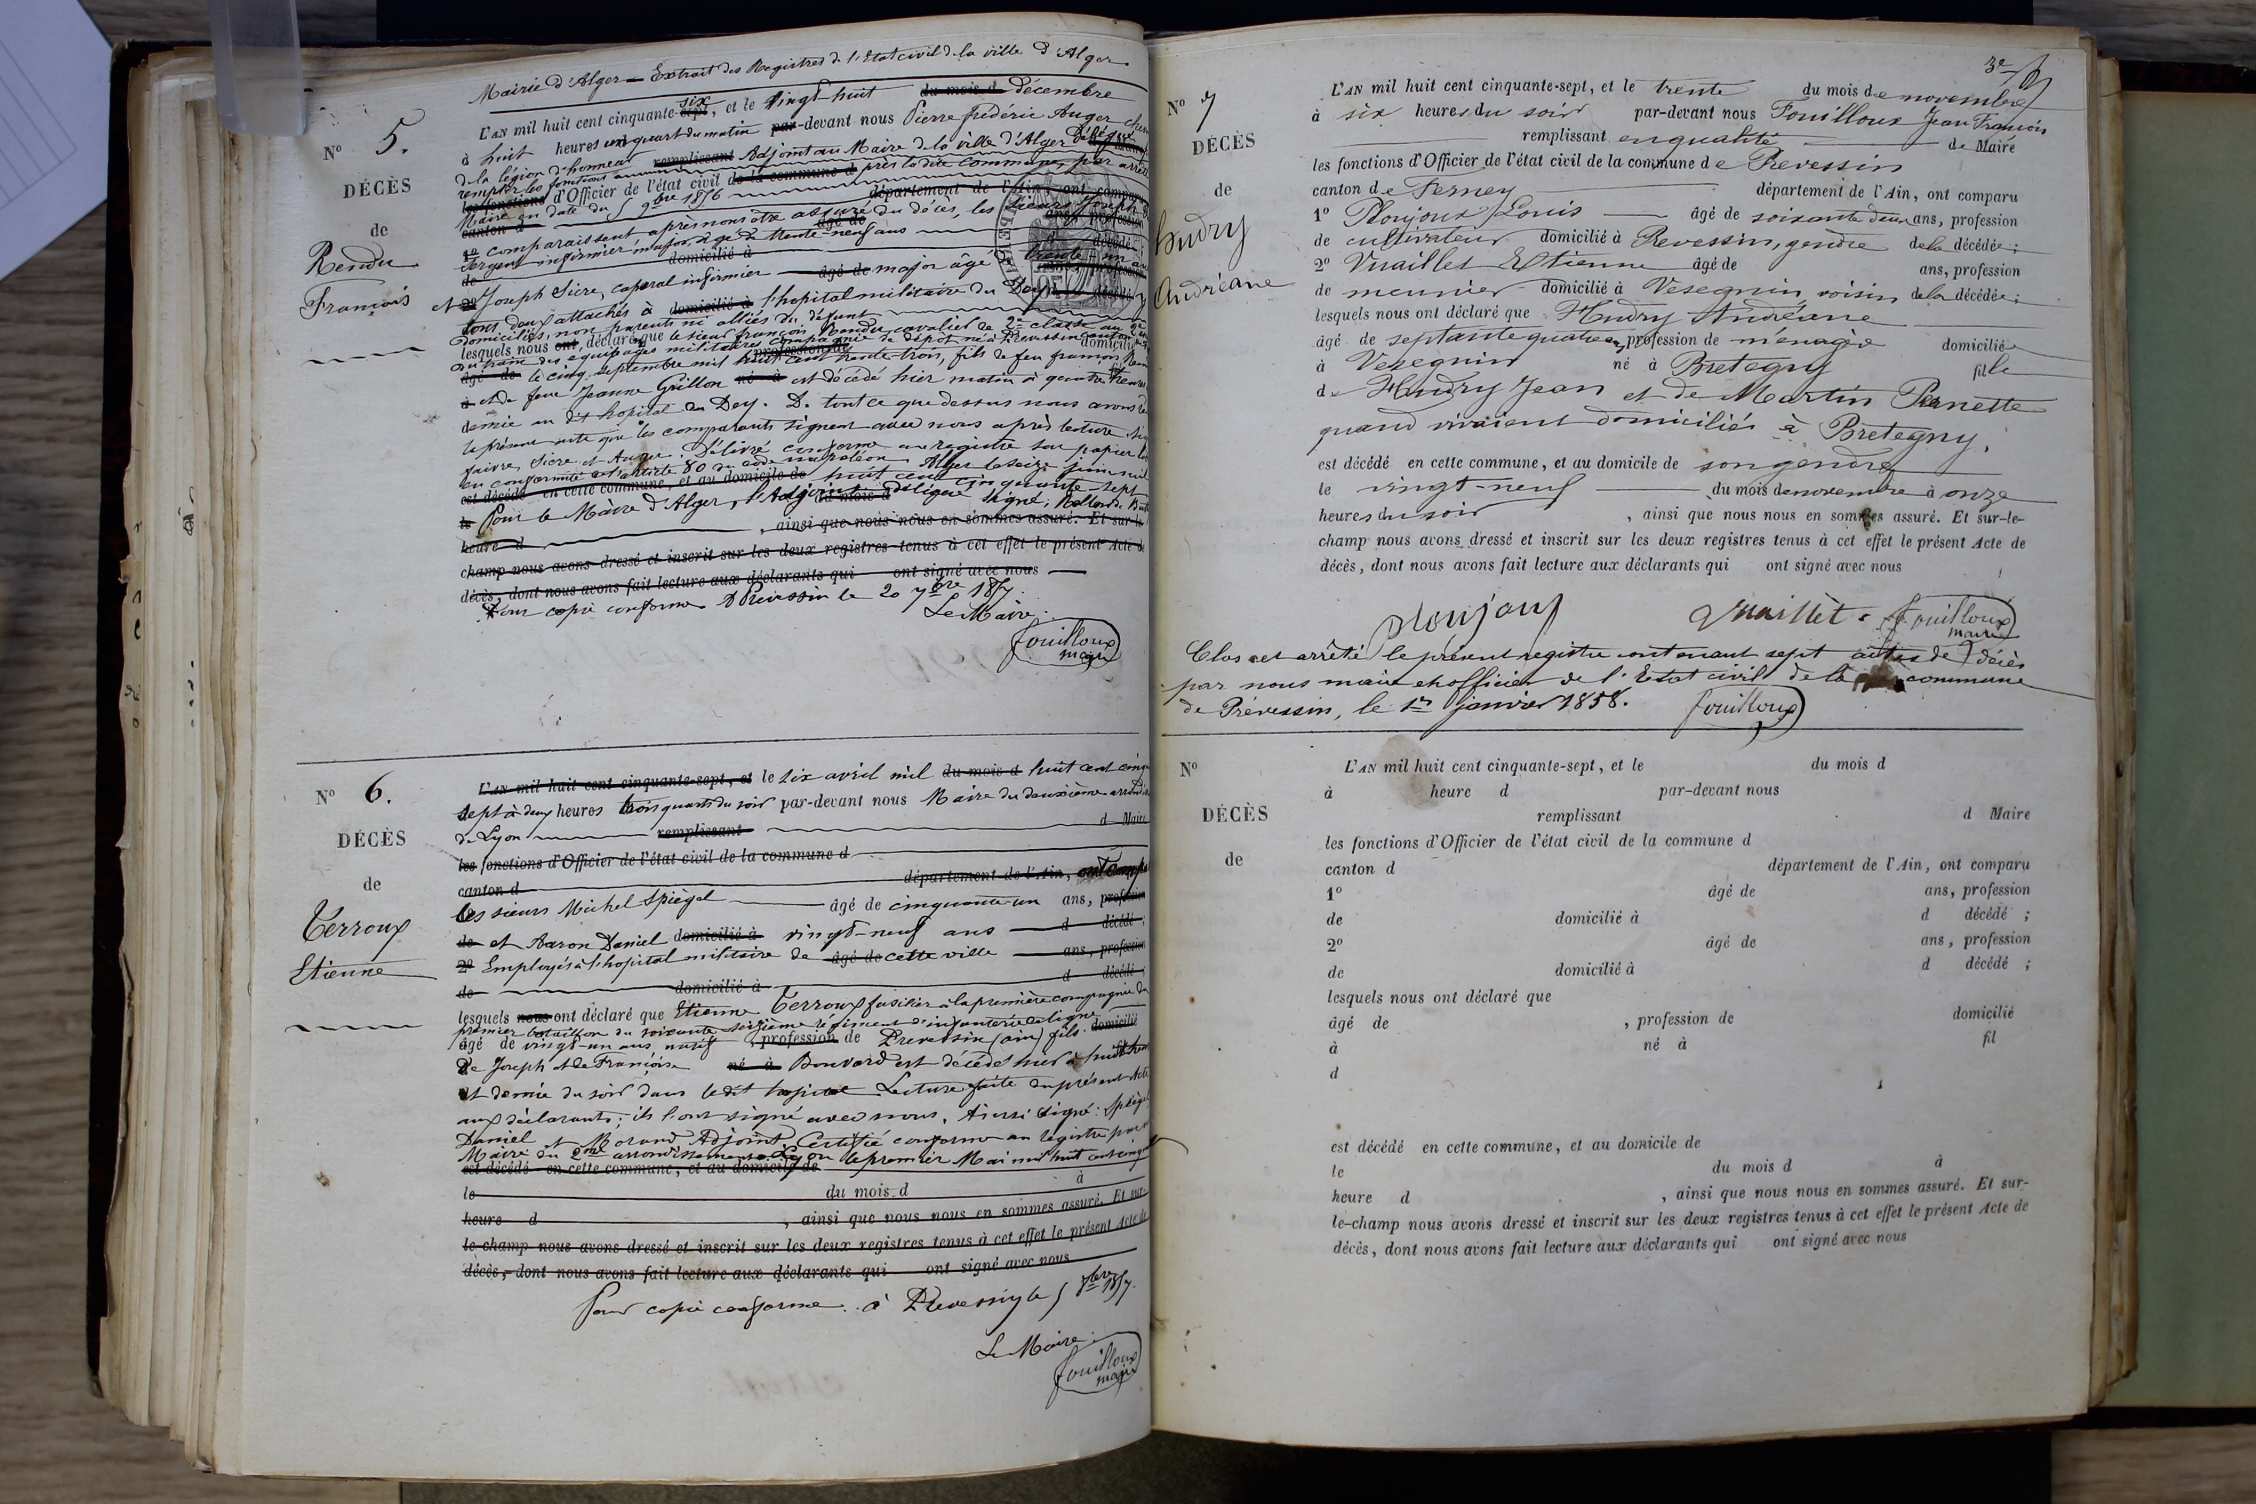 Mairie d'Alger — Extrait des Registres de l'Etat civil de la ville d'Alger
N° 5.
DÉCÈS
de
Rendu
François
L'AN mil huit cent cinquante-sept six, et le vingt huit du mois d décembre
à huit heures un quart du matin par-devant nous Pierre frédéric Auger
de la légion d'honneur remplissant Adjoint au Maire de la ville d'Alger Délégué
remplir les fonctions
les fonctions d'Officier de l'état civil de la commune d près la dite commune, par arrêté
Maire en date du 5 9bre 1856 département de l'Ain, ont comparu
canton d
comparaissant après nous être assuré du décès, les sieurs Joseph
sergent infirmier major, âgé de trente-neuf ans
de domicilié à d décédé
et 2° Joseph Sicre, caporal infirmier âgé de major âgé trente un
tous deux attachés à domicilié à l'hopital militaire du Dey
domiciliés, non parents ni alliés du défunt
lesquels nous ont déclaré que le sieur françois Rendu, cavalier de 2e classe au
du train des équipages militaires compagnie de dépôt né à Prevessin canton
âgé de le cinq septembre mil huit cent trente trois, fils de feu françois
à et de feue Jeanne Grillon né à est décédé hier matin à quatre heures
demie au dit hopital du Dey. D. tout ce que dessus nous avons
le présent acte que les comparants signent avec nous après lecture
faivre, Sicre et Auger. Délivré conforme au registre sur papier
en conformité de l'article 80 du code napoléon Alger le seize juin mil
est décédé en cette commune, et au domicile de huit cent cinquante sept
le Pour le Maire d'Alger, l'Adjoint du mois d délégué signé,
, ainsi que nous nous en sommes assuré. Et sur-le
heure d
champ nous avons dressé et inscrit sur les deux registres tenus à cet effet le présent Acte de
décès, dont nous avons fait lecture aux déclarants qui ont signé avec nous
Pour copie conforme à Prévessin le 20 7bre 1857.
Le Maire.
fouilloux
maire
N° 6.
DÉCÈS
de
Terroux
Etienne
L'AN mil huit cent cinquante-sept, et le six avril mil du mois d huit cent cinq
sept à deux heures trois quarts du soir par-devant nous Maire du deuxième
de Lyon remplissant d Maire
les fonctions d'Officier de l'état civil de la commune d
canton d département de l'Ain, ont comparu
les sieurs Michel Spiégel âgé de cinquante un ans, profession
de et Aaron Daniel domicilié à vingt-neuf ans d décédé ;
2° Employés à l'hopital militaire de âgé de cette ville ans, profession
de domicilié à d décédé ;
lesquels nous ont déclaré que Etienne Terroux fusilier à la première compagnie du
premier bataillon du soixante seizième régiment d'infanterie de ligne
âgé de vingt-un ans natif , profession de Prevessin (ain) fils domicilié
De Joseph et de Françoise né à Bouvard est décédé hier à huit heures
et demie du soir dans ledit hopital Lecture faite du présent Acte
aux déclarants, ils l'ont signé avec nous. Ainsi signé : Spiégel
Daniel et Morand Adjoint. Certifié conforme au registre par
Maire du 2me arrondissement Lyon le premier Mai mil huit cent cinq
est décédé en cette commune, et au domicile de
le du mois d à
heure d , ainsi que nous nous en sommes assuré. Et sur-
le-champ nous avons dressé et inscrit sur les deux registres tenus à cet effet le présent Acte de
décès, dont nous avons fait lecture aux déclarants qui ont signé avec nous
Pour copie conforme à Prevessin le 5 8bre 1857.
Le Maire.
fouilloux
maire
N° 7
DÉCÈS
de
hudry
Andréane
L'AN mil huit cent cinquante-sept, et le trente du mois de novembre
à six heures du soir par-devant nous Fouilloux Jean François
remplissant en qualité de Maire
les fonctions d'Officier de l'état civil de la commune de Prevessin
canton de Ferney département de l'Ain, ont comparu
1° Ploujoux Louis âgé de soixante deux ans, profession
de cultivateur domicilié à Prevessin, gendre de la décédée ;
2° Vuaillet Etienne âgé de ans, profession
de meunier domicilié à Vesegnin, voisin de la décédée ;
lesquels nous ont déclaré que Hudry Andréane
âgé de septante quatre, profession de ménagè domicilié
à Vesegnin né à Bretegny fille
de Hudry Jean et de Martin Pernette
quand vivaient domiciliés à Bretegny,
est décédé en cette commune, et au domicile de son gendre
le vingt-neuf du mois de novembre à onze
heures du soir , ainsi que nous nous en sommes assuré. Et sur-le-
champ nous avons dressé et inscrit sur les deux registres tenus à cet effet le présent Acte de
décès, dont nous avons fait lecture aux déclarants qui ont signé avec nous
Ploujoux Vuaillet fouilloux
maire
Clos et arrêté le présent registre contenant sept actes de décès
par nous maire et officier de l'Etat civil de la commune
de Prevessin, le 1er janvier 1858. fouilloux
N°
DÉCÈS
de
L'AN mil huit cent cinquante-sept, et le du mois d
à heure d par-devant nous
remplissant d Maire
les fonctions d'Officier de l'état civil de la commune d
canton d département de l'Ain, ont comparu
1° âgé de ans, profession
de domicilié à d décédé ;
2° âgé de ans, profession
de domicilié à d décédé ;
lesquels nous ont déclaré que
âgé de , profession de domicilié
à né à fil
d
est décédé en cette commune, et au domicile de
le du mois d à
heure d , ainsi que nous nous en sommes assuré. Et sur-
le-champ nous avons dressé et inscrit sur les deux registres tenus à cet effet le présent Acte de
décès, dont nous avons fait lecture aux déclarants qui ont signé avec nous